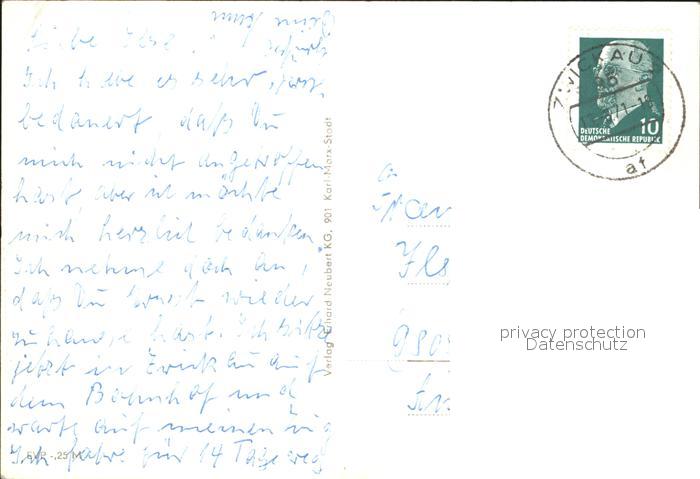 Liebe Ilse!
Ich habe es sehr
bedauert, daß Du
mich nicht angetroffen
hast, aber ich möchte
mich herzlich bedanken.
Ich nehme doch an,
daß Du sonst wieder
zuhause hast. Ich sitze
jetzt in Zwickau auf
dem Bahnhof und
warte auf meinen Zug
Ich fahre für 14 Tage weg
EVP -,25 M
Verlag Erhard Neubert KG, 901 Karl-Marx-Stadt
ZWICKAU
af
10
DEUTSCHE
DEMOKRATISCHE REPUBLIK
An
Frau
Ils
privacy protection
Datenschutz